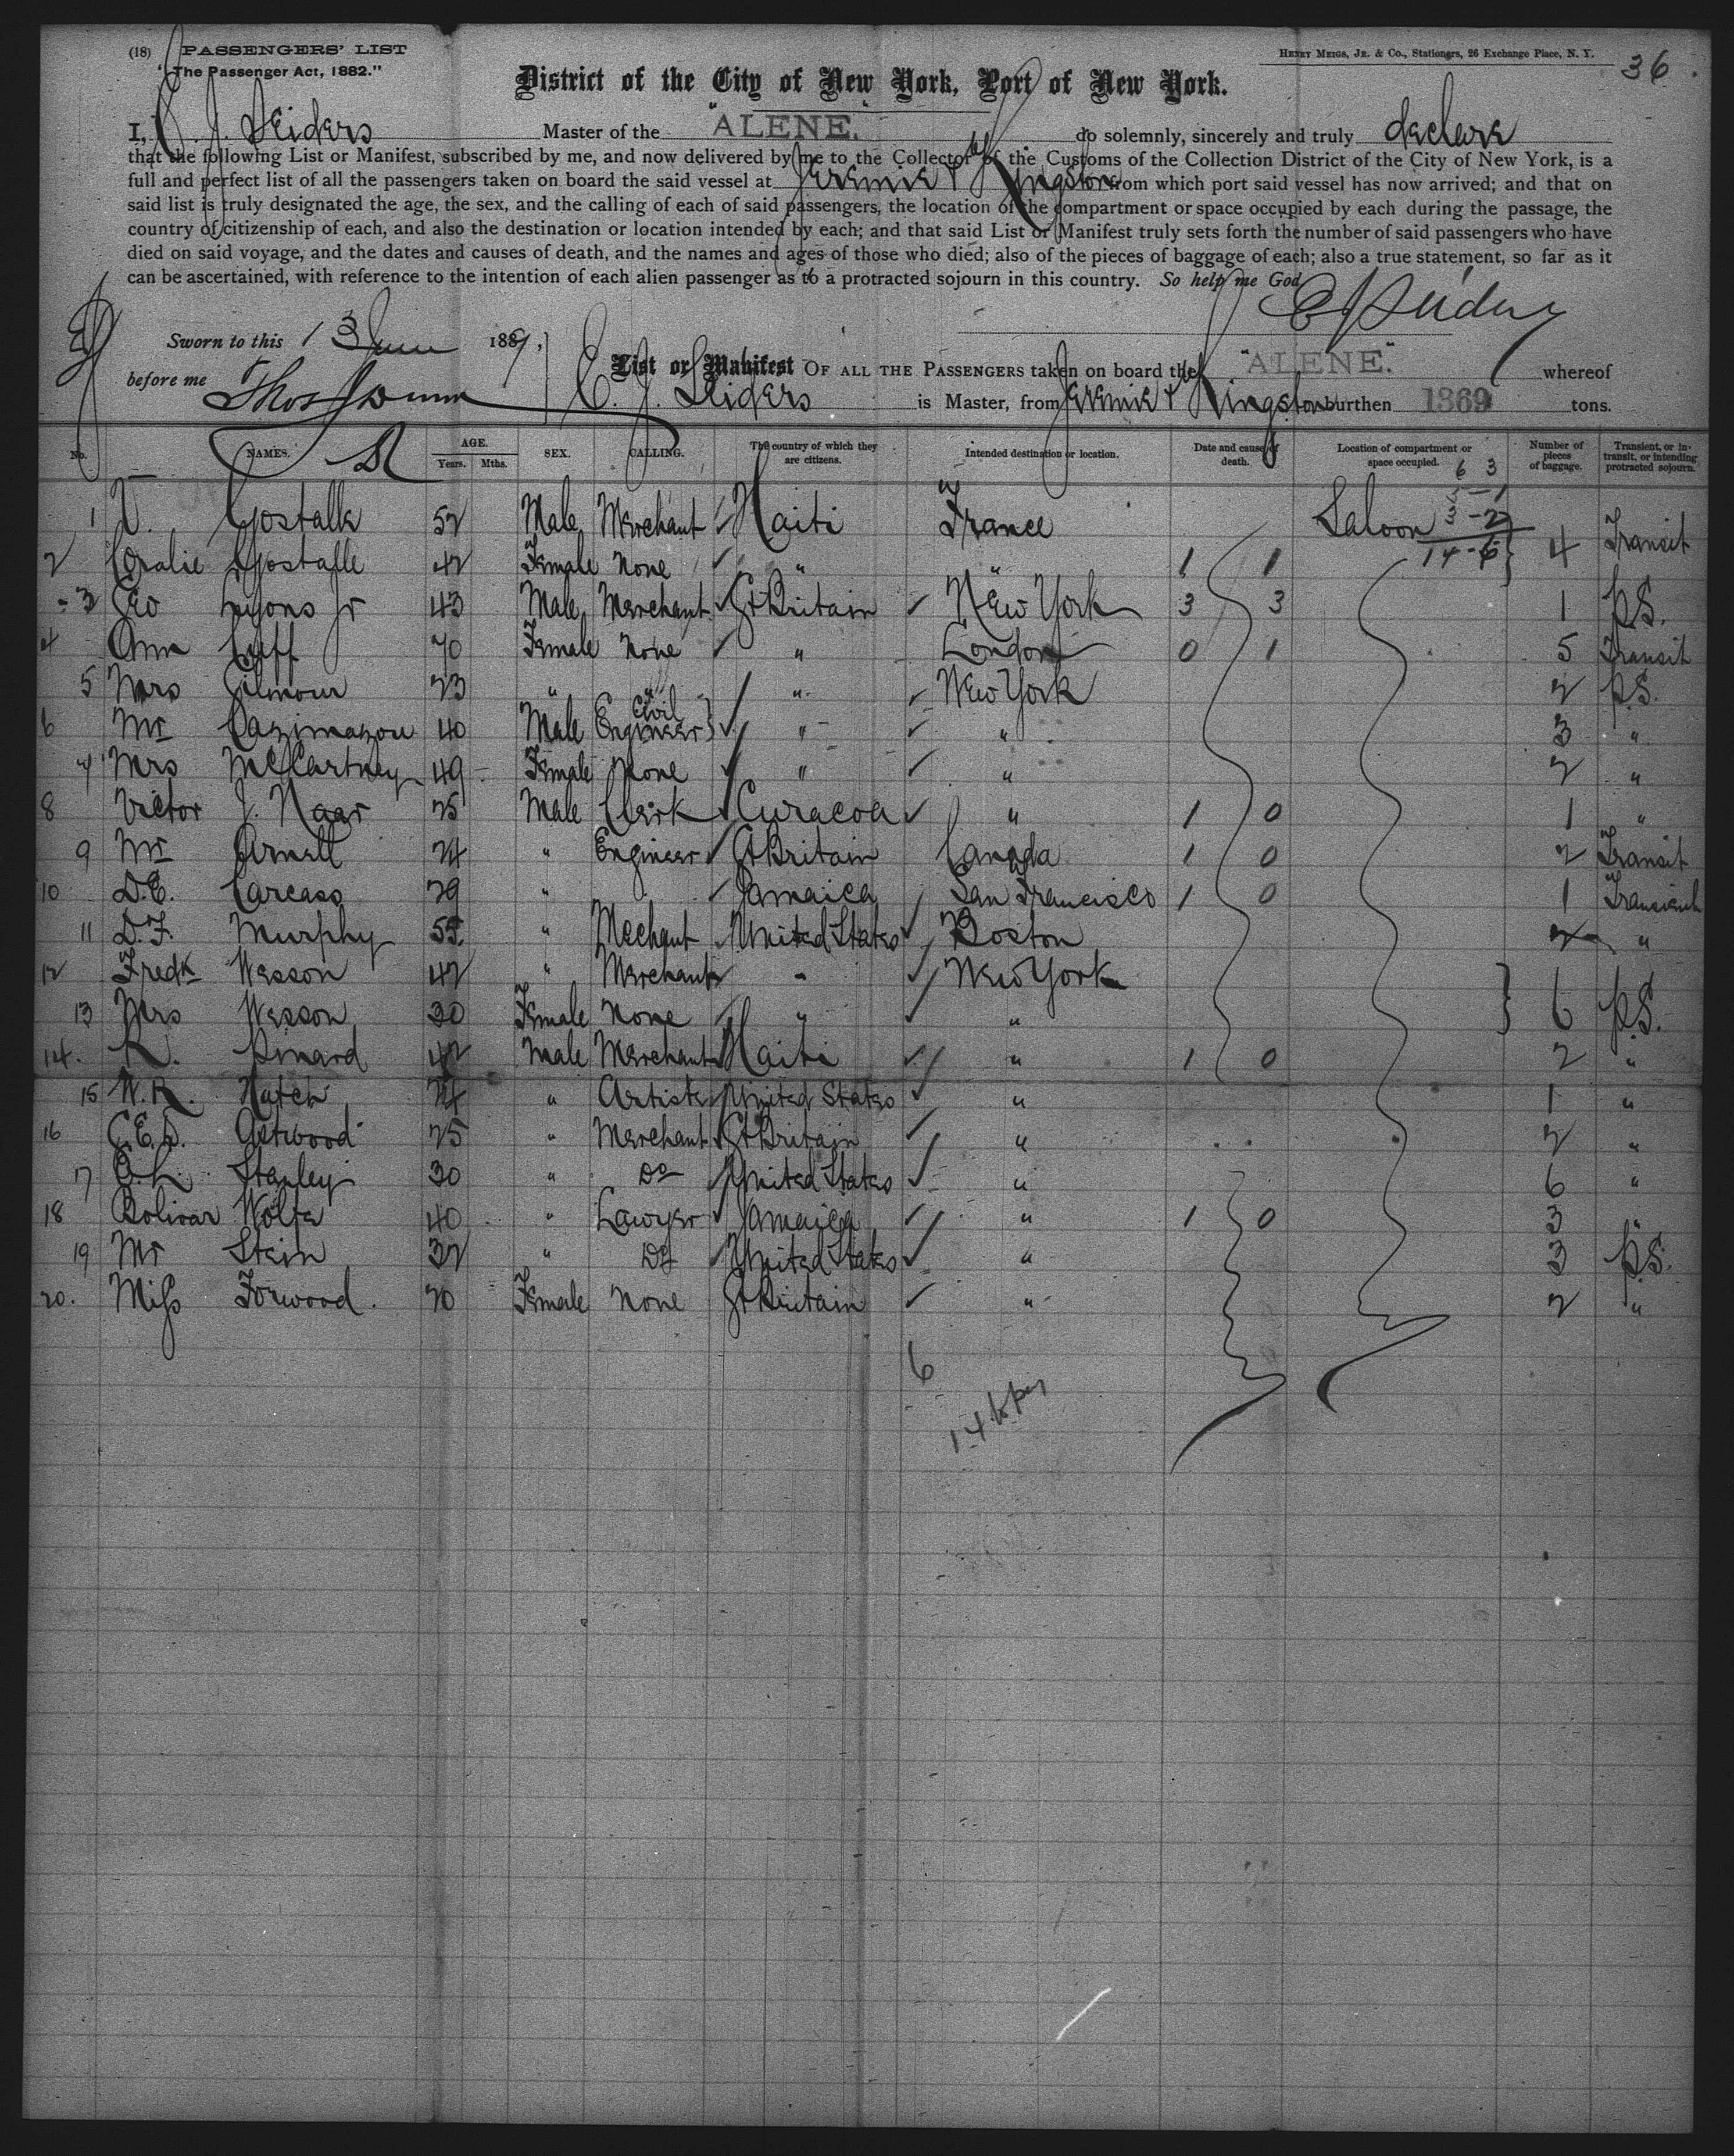 (18) PASSENGERS' LIST
"The Passenger Act, 1882."
Henry Meigs, Jr. & Co., Stationers, 26 Exchange Place, N. Y.
36
District of the City of New York, Port of New York.
I, C. J. Seiders Master of the "ALENE." do solemnly, sincerely and truly declare
that the following List or Manifest, subscribed by me, and now delivered by me to the Collector of the Customs of the Collection District of the City of New York, is a
full and perfect list of all the passengers taken on board the said vessel at Jeremie & Kingston from which port said vessel has now arrived; and that on
said list is truly designated the age, the sex, and the calling of each of said passengers, the location of the compartment or space occupied by each during the passage, the
country of citizenship of each, and also the destination or location intended by each; and that said List or Manifest truly sets forth the number of said passengers who have
died on said voyage, and the dates and causes of death, and the names and ages of those who died; also of the pieces of baggage of each; also a true statement, so far as it
can be ascertained, with reference to the intention of each alien passenger as to a protracted sojourn in this country. So help me God
C J Seiders
Sworn to this 13 June 1889,
before me
List or Manifest OF ALL THE PASSENGERS taken on board the "ALENE." whereof
C. J. Seiders is Master, from Jeremie & Kingston burthen 1369 tons.
No. NAMES. AGE. Years. Mths. SEX. CALLING. The country of which they are citizens. Intended destination or location. Date and cause of death. Location of compartment or space occupied. Number of pieces of baggage. Transient, or in-transit, or intending protracted sojourn.
1 Gostalle 52 Male Merchant Haiti France Saloon
2 Coralie Gostalle 42 Female None " " 1 1 14-6 4 Transit
3 Geo Lyons Jr 43 Male Merchant Gt Britain New York 3 3 1 P.S.
4 Ann Cuff 70 Female None " London 0 1 5 Transit
5 Mrs Gilmour 23 " " " New York 2 P.S.
6 Mr 40 Male Civil Engineer " " 3 "
7 Mrs McCartney 49 Female None " " 2 "
8 Victor J. Naar 25 Male Clerk Curacoa " 1 0 1 "
9 Mr Arnell 24 " Engineer Gt Britain Canada 1 0 2 Transit
10 D.E. Carcass 29 " Jamaica San Francisco 1 0 1 Transient
11 D.F. Murphy 55 " Mechant United States Boston 2 "
12 Fredk Wesson 42 " Merchant " New York
13 Mrs Wesson 30 Female None " " 6 P.S.
14. R. Pinard 42 Male Merchant Haiti " 1 0 2 "
15 W.R. Hatch 24 " Artiste United States " 1 "
16 C.E.D. Astwood 25 " Merchant Gt Britain " 2 "
17 O.L. Stanley 30 " Do United States " 6 "
18 Bolivar Wolfe 40 " Lawyer Jamaica " 1 0 3 "
19 Mr Stein 32 " Do United States " 3 P.S.
20. Miss Forwood. 20 Female None Gt Britain " 2 "
6
14